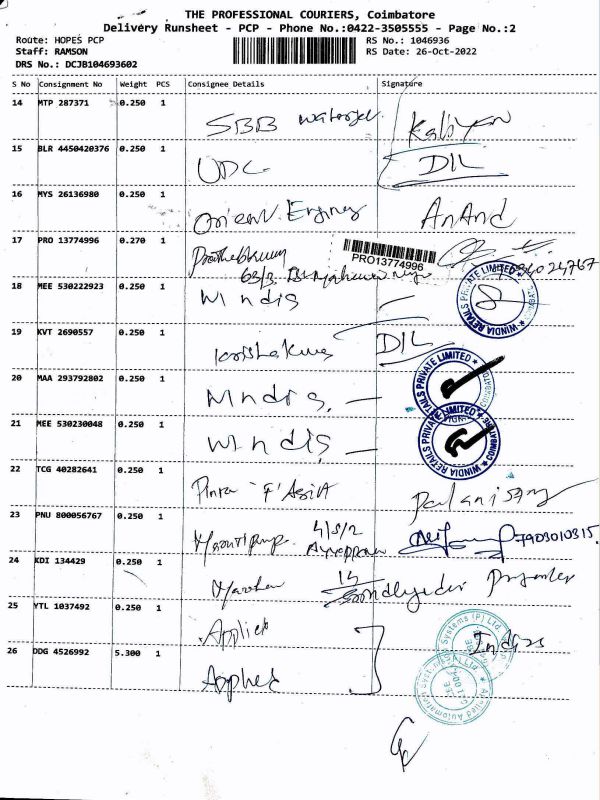 THE PROFESSIONAL COURIERS, Coimbatore
Delivery Runsheet - PCP - Phone No.:0422-3505555 - Page No.:2
Route: HOPES PCP RS No.: 1046936
Staff: RAMSON RS Date: 26-Oct-2022
DRS No.: DCJB104693602
S No Consignment No Weight PCS Consignee Details Signature
14 MTP 287371 0.250 1 SBB Waterjet Kaliyan
15 BLR 4450420376 0.250 1 UDC DIL
16 MYS 26136980 0.250 1 Orient Engineg Anand
17 PRO 13774996 0.270 1
PRO13774996
18 MEE 530222923 0.250 1 Windis
WINDIA RETAILS PRIVATE LIMITED
19 KVT 2690557 0.250 1 DIL
20 MAA 293792802 0.250 1 Windis
WINDIA RETAILS PRIVATE LIMITED
21 MEE 530230048 0.250 1 Windis
WINDIA RETAILS PRIVATE LIMITED COIMBATORE
22 TCG 40282641 0.250 1
23 PNU 800056767 0.250 1 7903010315
24 KDI 134429 0.250 1
25 YTL 1037492 0.250 1 Applied
26 DDG 4526992 5.300 1 Applied